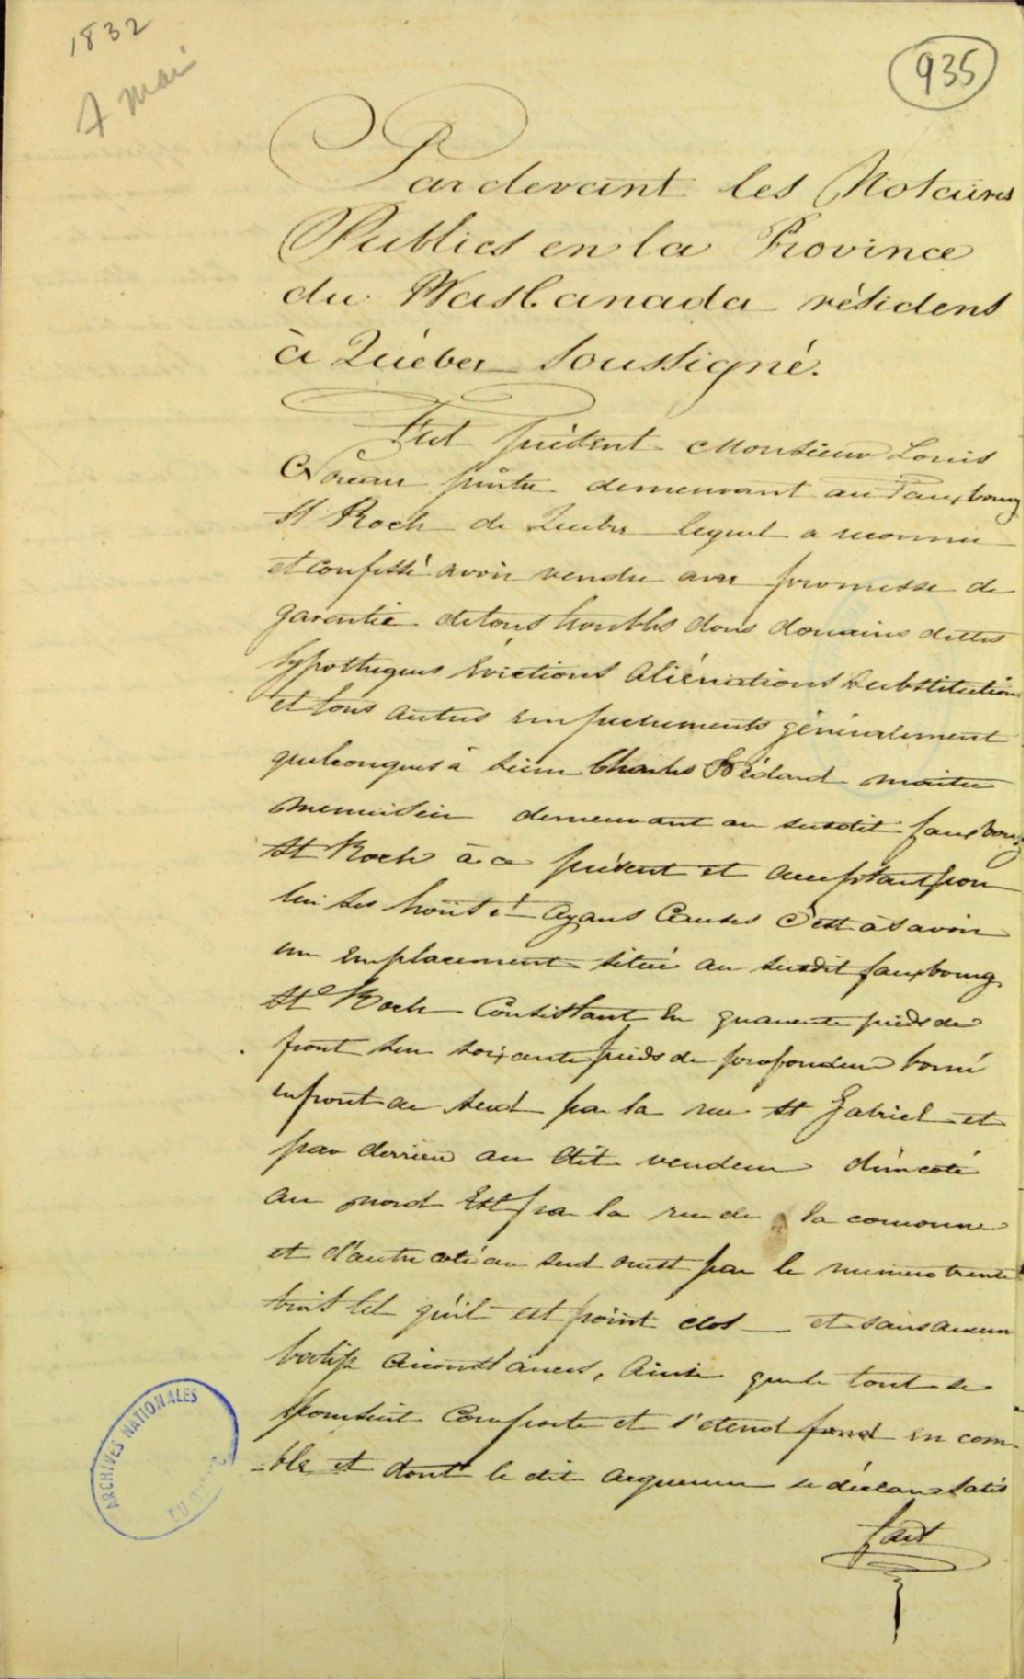 1832
7 mai
935
Pardevant les Notaires
Publics en la Province
du Bas Canada résidens
à Québec soussigné.
Fut présent Monsieur Louis
peintre demeurant au Fauxbourg
St Roch de Québec lequel a reconnu
et confessé avoir vendu avec promesse de
garantie de tous troubles dons douaires dettes
hypotheques évictions aliénations substitution
et tous autres empechements généralement
quelconques à sieur Charles Bédard maitre
menuisier demeurant au susdit fauxbourg
St Roch à ce présent et acceptant pour
lui ses hoirs et ayans causes c'est à savoir
un emplacement situé au susdit fauxbourg
St Roch consistant en quarante pieds de
front sur soixante pieds de profondeur borné
en front au sud par la rue St Gabriel et
par derriere au dit vendeur d'un coté
au nord Est par la rue de la couronne
et d'autre coté au sud ouest par le numero trente
trois tel qu'il est point clos et sans aucun
batisse circonstances, ainsi que le tout se
poursuit comporte et s'etend fond en com-
-ble et dont le dit acquereur se déclare satis
fait
ARCHIVES NATIONALES
DU QUÉBEC